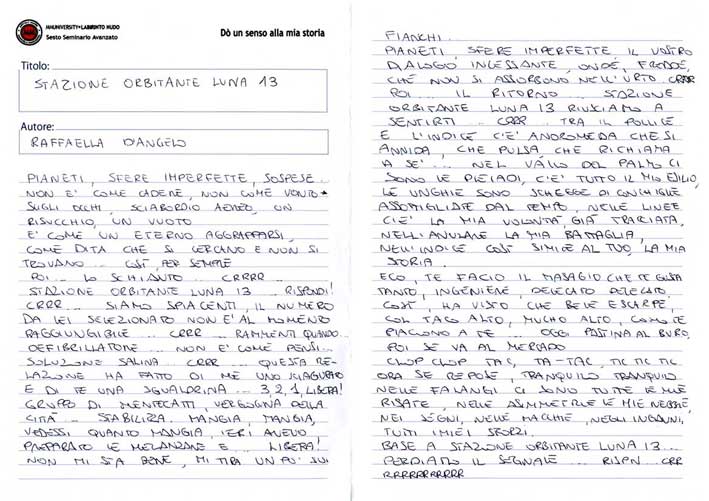 IMMUNIVERSITY•LABIRINTO NUDO
Sesto Seminario Avanzato
Dò un senso alla mia storia
Titolo:
STAZIONE ORBITANTE LUNA 13
Autore:
RAFFAELLA D'ANGELO
PIANETI, SFERE IMPERFETTE, SOSPESE..
NON E' COME CADERE, NON COME VENTO
SUGLI OCCHI, SCIABORDIO AEREO, UN
RISUCCHIO, UN VUOTO
E' COME UN ETERNO AGGRAPPARSI,
COME DITA CHE SI CERCANO E NON SI
TROVANO... COSÌ, PER SEMPRE
POI... LO SCHIANTO... CRRRR...
STAZIONE ORBITANTE LUNA 13... RISPONDI!
CRRR... SIAMO SPIACENTI, IL NUMERO
DA LEI SELEZIONATO NON E' AL MOMENTO
RAGGIUNGIBILE... CRRR... RAMMENTI QUANDO..
DEFIBRILLATORE... NON E' COME PENSI...
SOLUZIONE SALINA... CRRR... QUESTA RE-
LAZIONE HA FATTO DI ME UNO SCIAGURATO
E DI TE UNA SGUALDRINA... 3,2,1, LIBERA!
GRUPPO DI MENTECATTI, VERGOGNA DELLA
CITTÀ... STABILIZZA. MANGIA, MANGIA,
VEDESSI QUANTO MANGIA, IERI AVEVO
PREPARATO LE MELANZANE E... LIBERA!
NON MI STA BENE, MI TIRA UN PO' SUI
FIANCHI...
PIANETI, SFERE IMPERFETTE, IL VOSTRO
DIALOGO INCESSANTE, ONDE, FREDDE,
CHE NON SI ASSORBONO NELL'URTO. CRRR
POI... IL RITORNO... STAZIONE
ORBITANTE LUNA 13 RIUSCIAMO A
SENTIRTI... CRRR... TRA IL POLLICE
E L'INDICE C'E' ANDROMEDA CHE SI
ANNIDA, CHE PULSA, CHE RICHIAMA
A SE'... NEL VALLO DEL PALMO CI
SONO LE PLEIADI, C'E' TUTTO IL MIO ESILIO,
LE UNGHIE SONO SCHEGGE DI CONCHIGLIE
ASSOTTIGLIATE DAL TEMPO, NELLE LINEE
C'E' LA MIA VOLONTÀ, GIÀ TRACCIATA,
NELL'ANULARE LA MIA BATTAGLIA,
NELL'INDICE COSÌ SIMILE AL TUO, LA MIA
STORIA.
ECO, TE FACIO IL MASAGIO CHE TE GUSTA
TANTO, INGENIERE, DELECATO DELECATO,
COSÌ, HA VISTO CHE BELE ESCARPE,
COL TACO ALTO, MUCHO ALTO, COME TE
PIACIONO A TE... OGGI PASTINA AL BURO,
POI SE VA AL MERCADO
CLOP CLOP TAC, TA-TAC, TIC TIC TIC
ORA SE REPOSE, TRANQUILO TRANQUILO
NELLE FALANGI CI SONO TUTTE LE MIE
RISATE, NELLE ASIMMETRIE LE MIE NEBBIE,
NEI SEGNI, NELLE MACCHIE, NEGLI INGANNI,
TUTTI I MIEI SFORZI.
BASE A STAZIONE ORBITANTE LUNA 13...
PERDIAMO IL SEGNALE... RISPN CRR
RRRRRRRRRRR